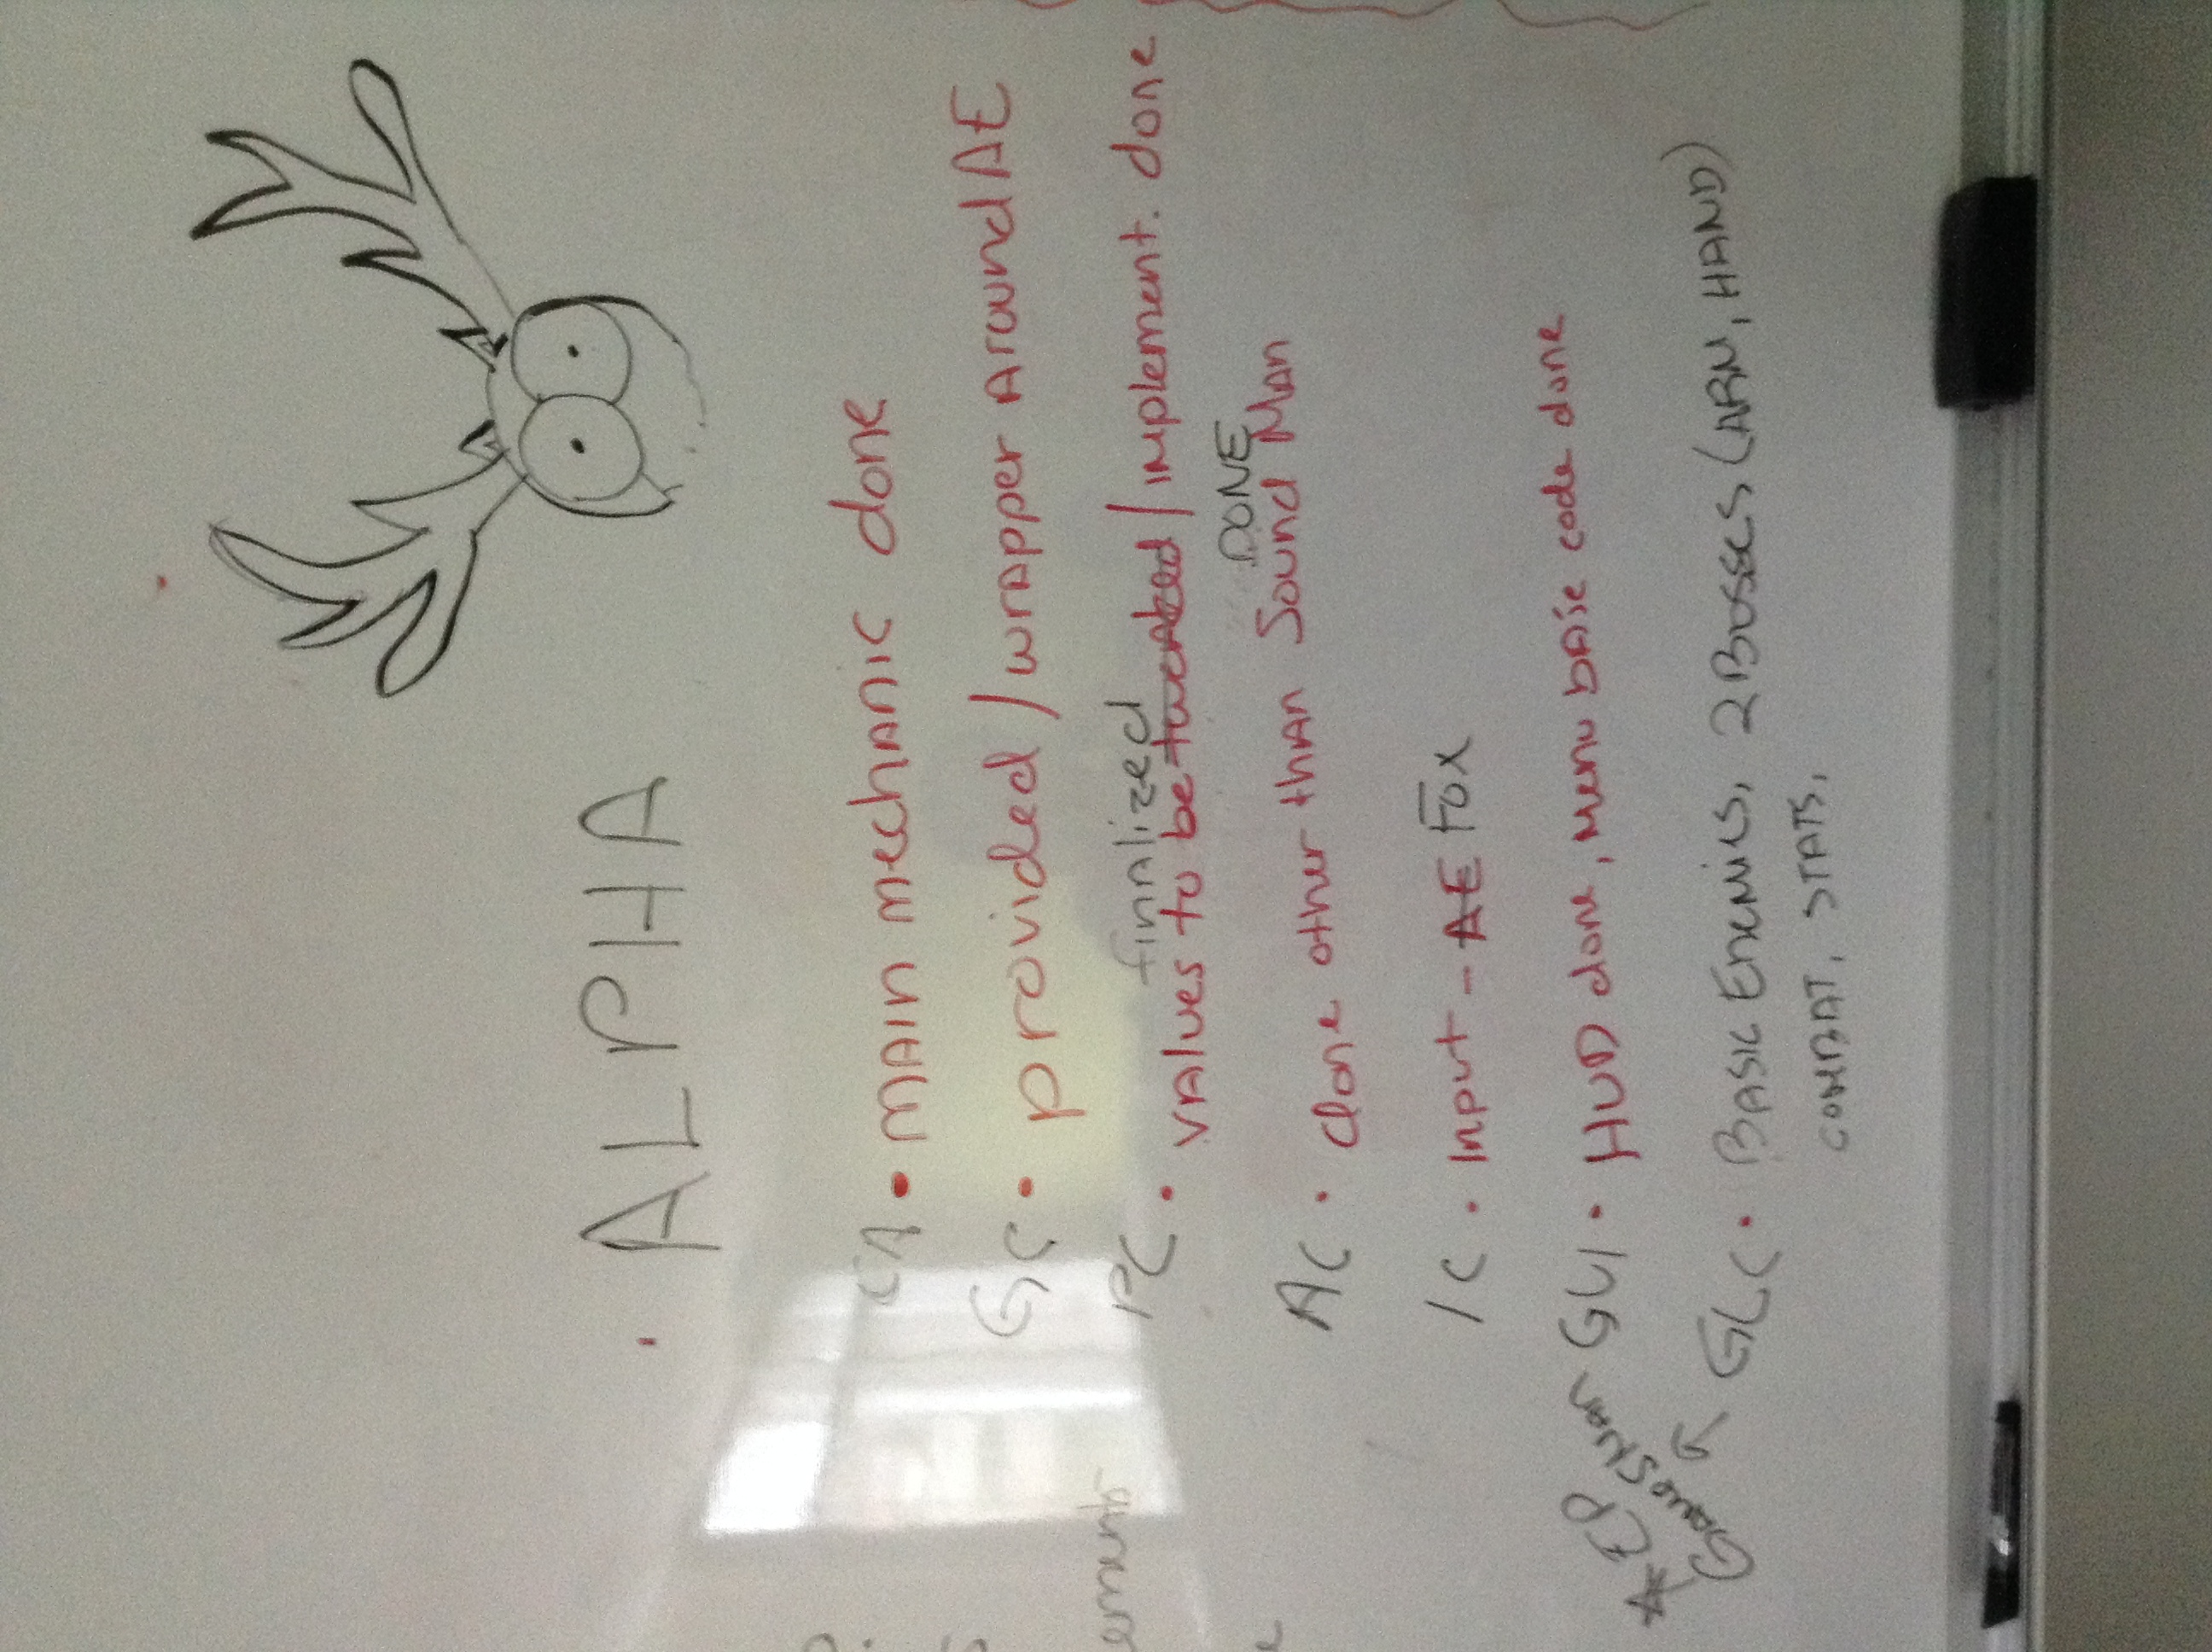 ALPHA
CA • MAIN MECHANIC done
GC • provided / wrapper Around AE
finalized
PC • VALUES to be tweaked / implement. done
DONE
AC • done other thAN Sound MAN
IC • Input - AE Fox
GUI • HUD done, Menu bASic code done
* EP
GLC • BASIC ENEMIES, 2 BOSSES (ARM, HAND)
COMBAT, STATS,
ements